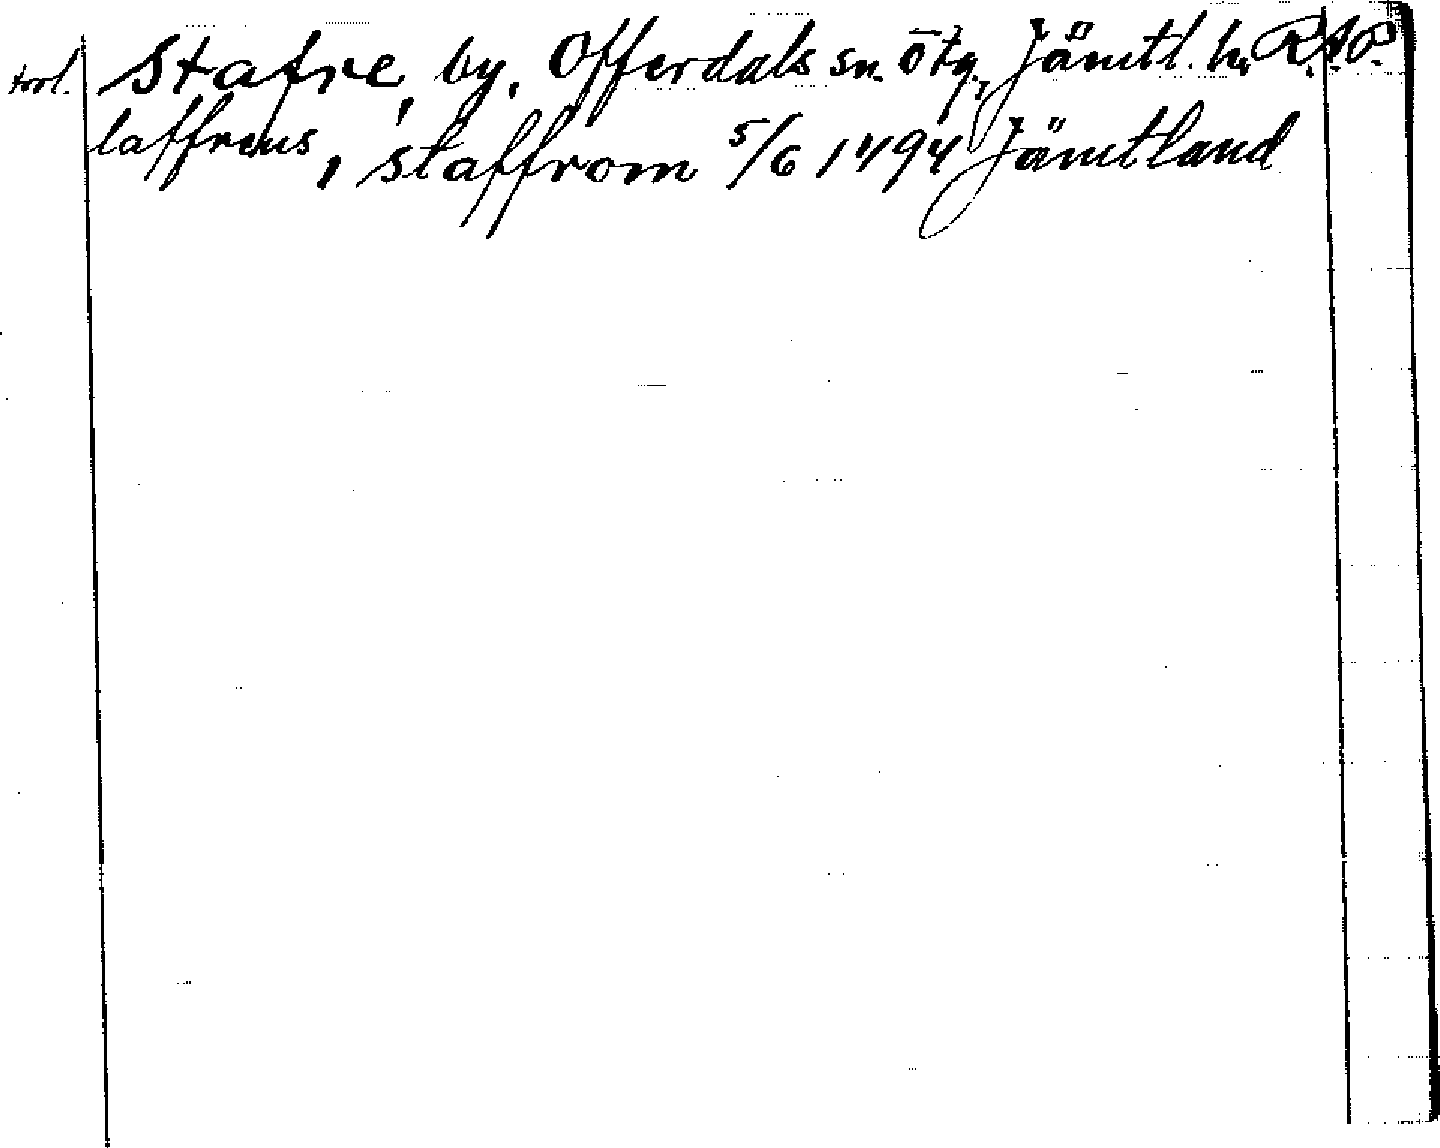 trol. Stafre, by, Offerdals sn. ötg, Jämtl. h. R.A.P.
laffrems, staffrom 5/6 1494 Jämtland